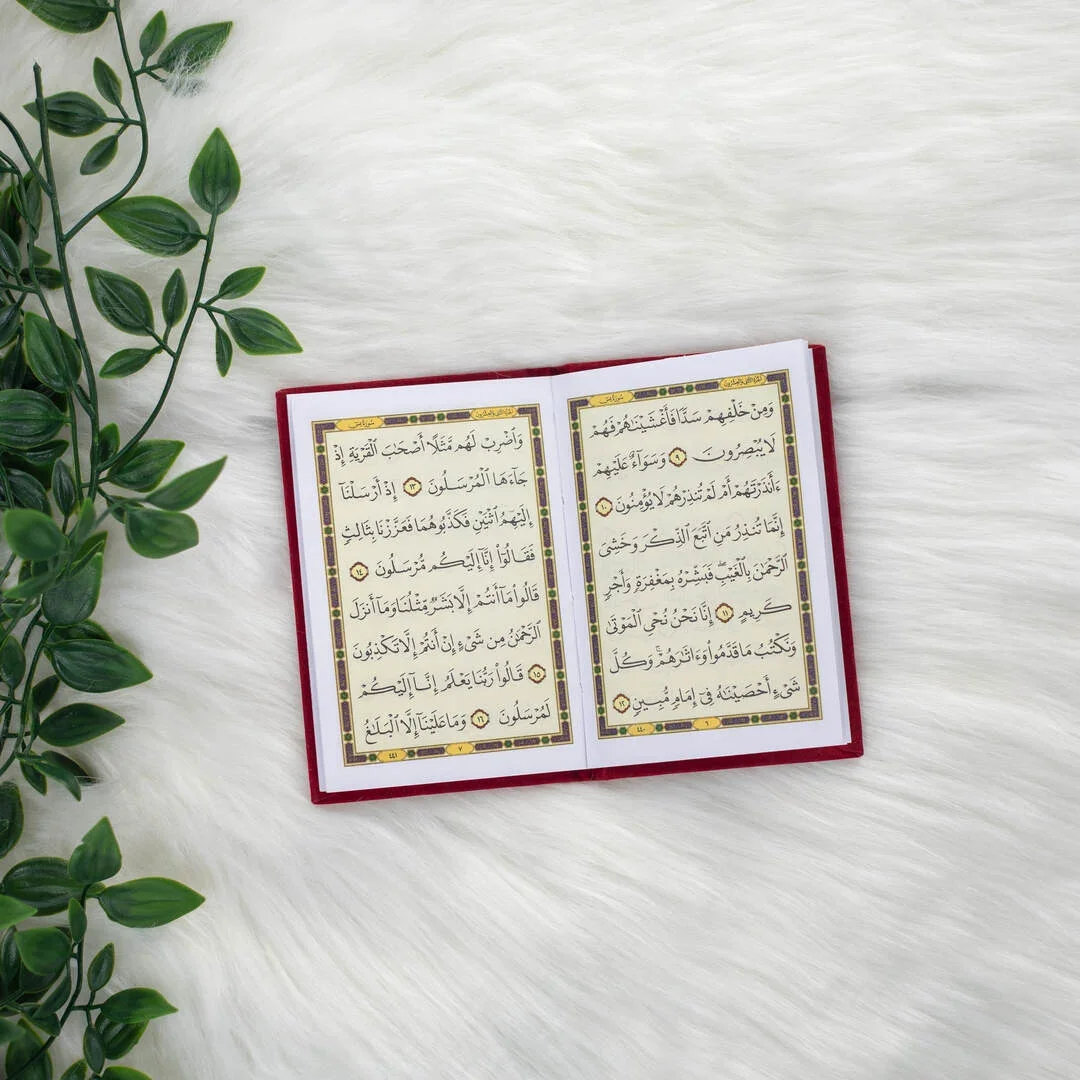 سورة يس
الجزء الثاني والعشرون
وَمِنْ خَلْفِهِمْ سَدًّا فَأَغْشَيْنَٰهُمْ فَهُمْ
لَا يُبْصِرُونَ ٩ وَسَوَآءٌ عَلَيْهِمْ
ءَأَنذَرْتَهُمْ أَمْ لَمْ تُنذِرْهُمْ لَا يُؤْمِنُونَ ١٠
إِنَّمَا تُنذِرُ مَنِ ٱتَّبَعَ ٱلذِّكْرَ وَخَشِىَ
ٱلرَّحْمَٰنَ بِٱلْغَيْبِ ۖ فَبَشِّرْهُ بِمَغْفِرَةٍ وَأَجْرٍ
كَرِيمٍ ١١ إِنَّا نَحْنُ نُحْىِ ٱلْمَوْتَىٰ
وَنَكْتُبُ مَا قَدَّمُوا۟ وَءَاثَٰرَهُمْ ۚ وَكُلَّ
شَىْءٍ أَحْصَيْنَٰهُ فِىٓ إِمَامٍ مُّبِينٍ ١٢
٤٤٠
٦
سورة يس
الجزء الثاني والعشرون
وَٱضْرِبْ لَهُم مَّثَلًا أَصْحَٰبَ ٱلْقَرْيَةِ إِذْ
جَآءَهَا ٱلْمُرْسَلُونَ ١٣ إِذْ أَرْسَلْنَآ
إِلَيْهِمُ ٱثْنَيْنِ فَكَذَّبُوهُمَا فَعَزَّزْنَا بِثَالِثٍ
فَقَالُوٓا۟ إِنَّآ إِلَيْكُم مُّرْسَلُونَ ١٤
قَالُوا۟ مَآ أَنتُمْ إِلَّا بَشَرٌ مِّثْلُنَا وَمَآ أَنزَلَ
ٱلرَّحْمَٰنُ مِن شَىْءٍ إِنْ أَنتُمْ إِلَّا تَكْذِبُونَ
١٥ قَالُوا۟ رَبُّنَا يَعْلَمُ إِنَّآ إِلَيْكُمْ
لَمُرْسَلُونَ ١٦ وَمَا عَلَيْنَآ إِلَّا ٱلْبَلَٰغُ
٤٤١
٧